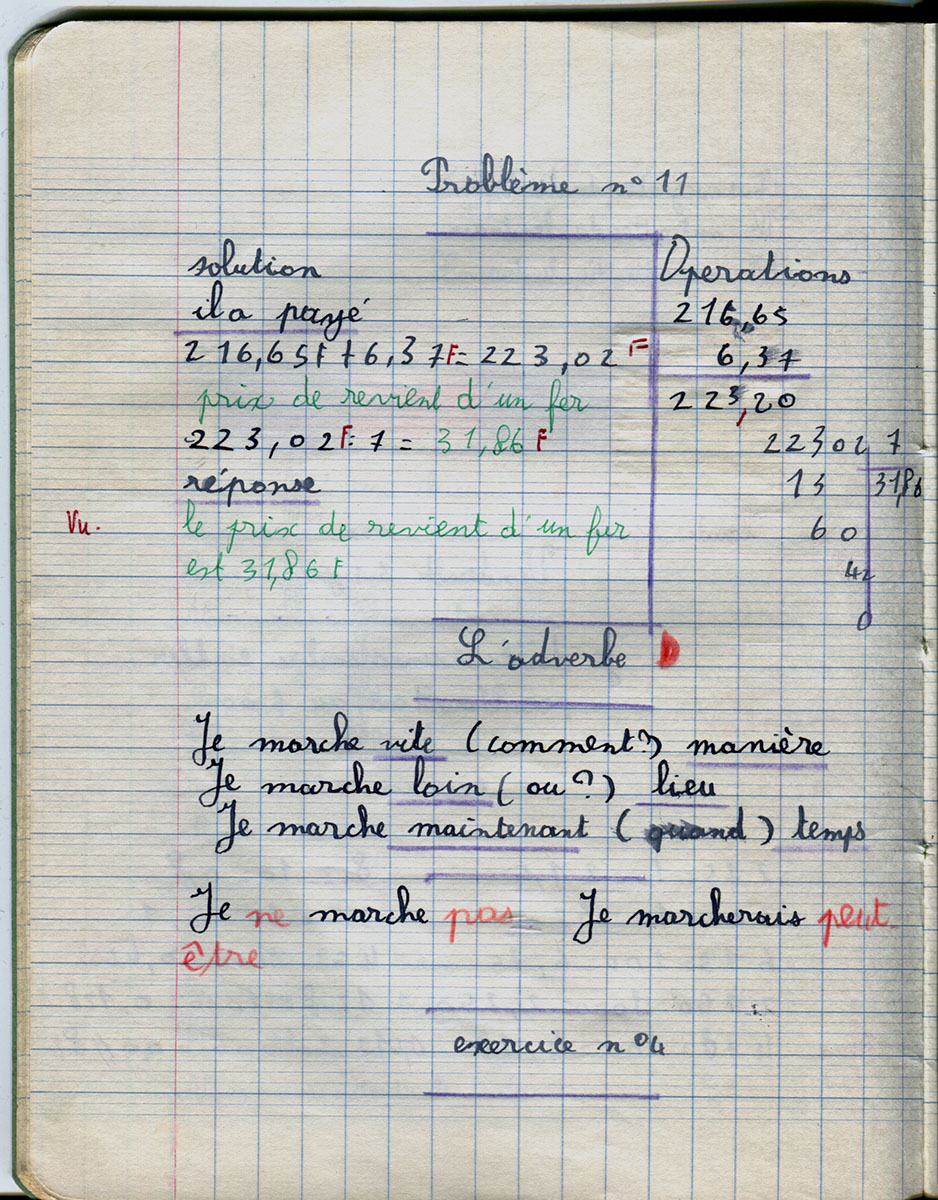 Problème n° 11
solution
il a payé
216,65F + 6,37F = 223,02 F
prix de revient d'un fer
223,02F : 7 = 31,86 F
réponse
Vu.
le prix de revient d'un fer
est 31,86 F
Operations
216,65
6,37
223,20
22302 7
13 31,86
60
42
0
L'adverbe D
Je marche vite (comment?) manière
Je marche loin (ou?) lieu
Je marche maintenant (quand) temps
Je ne marche pas Je marcherais peut
être
exercice n°4